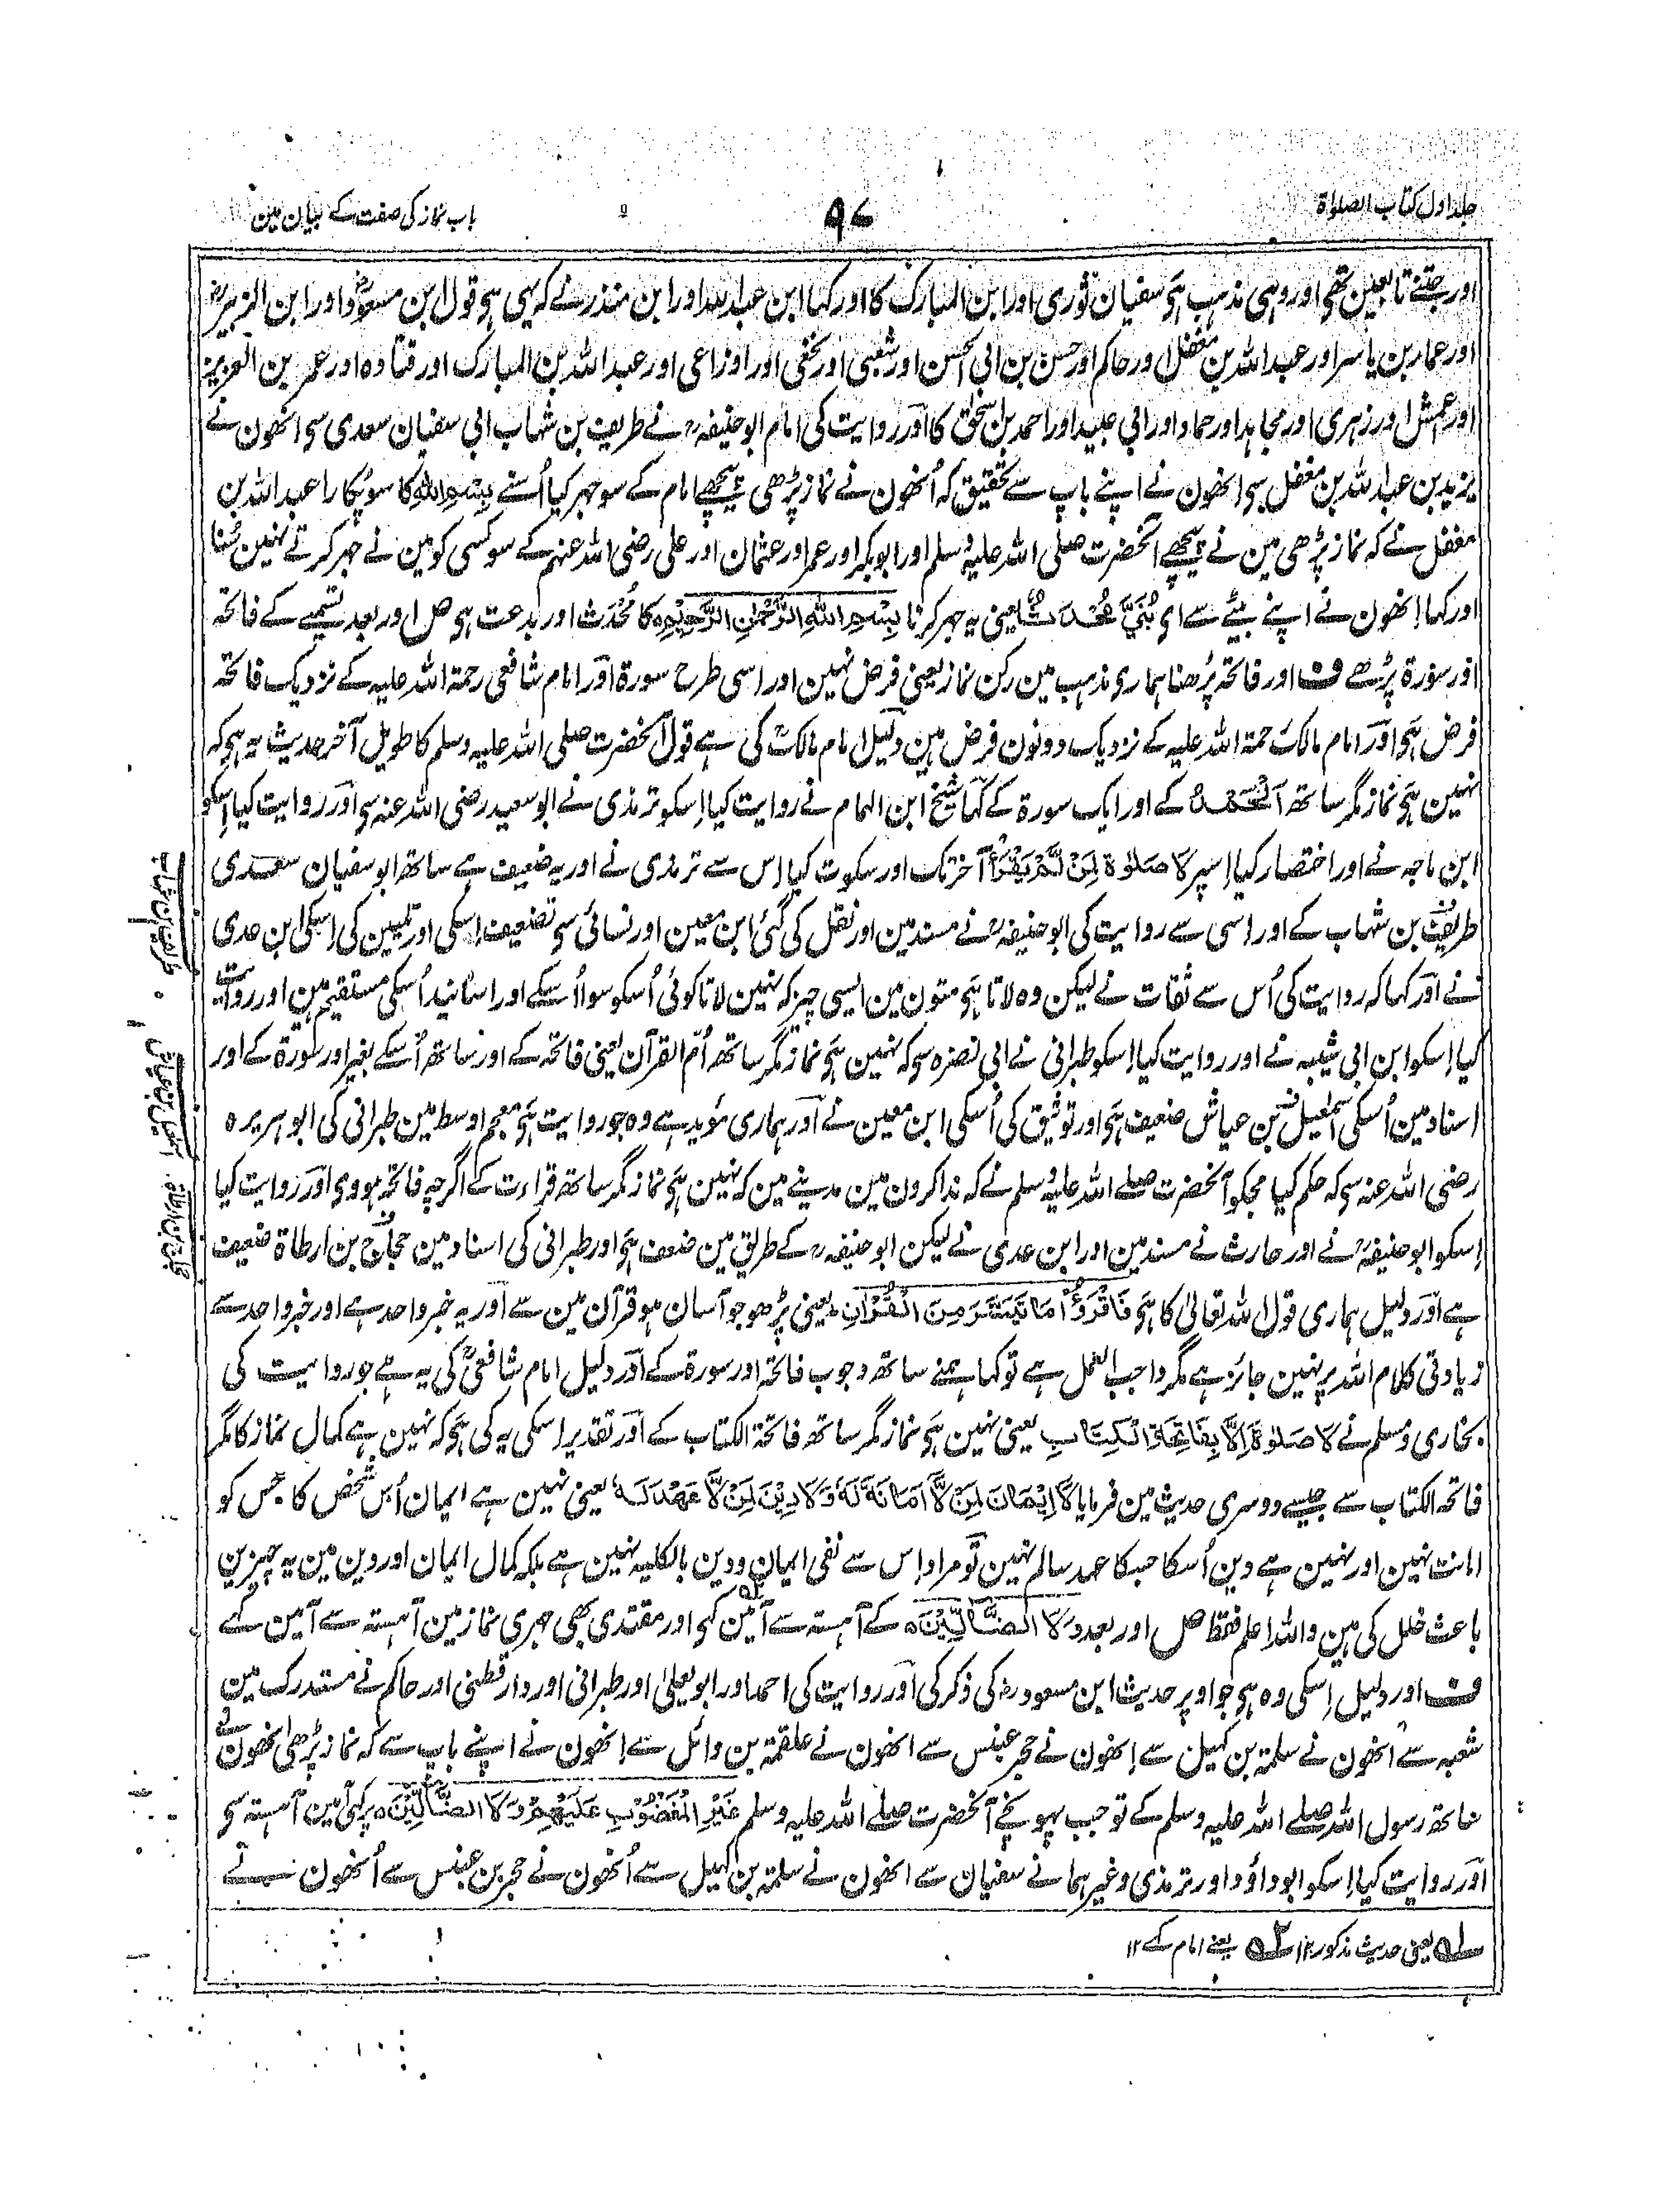 جلد اول کتاب الصلوٰۃ
۹۷
باب نماز کی صفت کے بیان مین
اور جتنے تابعین تھے اور وہی مذہب ہی سفیان ثوری اور ابن المبارک کا اور کہا ابن عبد البر اور ابن منذر نے کہ یہی ہی قول ابن مسعودؓ اور ابن الزبیرؓ
اور عمار بن یاسر اور عبد اللہ بن مغفل اور حاکم اور حسن بن ابی الحسن اور شعبی اور نخعی اور اوزاعی اور عبد اللہ بن المبارک اور قتادہ اور عمر بن العزیز
اور اعمش اور زہری اور مجاہد اور حماد اور ابی عبید اور احمد بن اسحٰق کا اور روایت کی امام ابو حنیفہؒ نے طریف بن شہاب ابی سفیان سعدی سی انھون نے
یزید بن عبد اللہ بن مغفل سی انھون نے اپنے باپ سے تحقیق کہ اُنھون نے نماز پڑھی پیچھے امام کے سو جہر کیا اُسنے بِسْمِ اللّٰہِ کا سو پکارا عبد اللہ بن
مغفل نے کہ نماز پڑھی مین نے پیچھے آنحضرت صلی اللہ علیہ وسلم اور ابوبکر اور عمر اور عثمان اور علی رضی اللہ عنہم کے سو کسی کو مین نے جہر کرتے نہین سُنا
اور کہا انھون نے اپنے بیٹے سے ای بُنَیَّ مُحْدَثٌ یعنی یہ جہر کرنا بِسْمِ اللّٰہِ الرَّحْمٰنِ الرَّحِیْمِ کا مُحْدَث اور بدعت ہی ص اور بعد تسمیے کے فاتحہ
اور سورۃ پڑھے ف اور فاتحہ پڑھنا ہماری مذہب مین رکن نماز یعنی فرض نہین اور اسی طرح سورۃ اور امام شافعی رحمۃ اللہ علیہ کے نزدیک فاتحہ
فرض ہی اور امام مالک رحمۃ اللہ علیہ کے نزدیک دونون فرض ہین دلیل امام مالکؒ کی ہے قول آنحضرت صلی اللہ علیہ وسلم کا طویل آخر حدیث یہ ہی کہ
نہین ہی نماز مگر ساتھ اَلْحَمْدُ کے اور ایک سورۃ کے کہا شیخ ابن الہمام نے روایت کیا اِسکو ترمذی نے ابو سعید رضی اللہ عنہ سی اور روایت کیا اِسکو
ابن ماجہ نے اور اختصار کیا اِسپر لَا صَلٰوۃَ لِمَنْ لَّمْ یَقْرَأْ آخر تک اور سکوت کیا اِس سے ترمذی نے اور یہ ضعیف ہے ساتھ ابو سفیان سعدی
طریف بن شہاب کے اور اِسی سے روایت کی ابو حنیفہؒ نے مسند مین اور نقل کی گئی ابن معین اور نسائی سی تضعیف اِسکی اور تلیین کی اِسکی ابن عدی
نے اور کہا کہ روایت کی اُس سے ثقات نے لیکن وہ لاتا ہی متون مین ایسی چیز کہ نہین لاتا کوئی اُسکو سوا اُسکے اور اسانید اُسکی مستقیم ہین اور روایت
کیا اِسکو ابن ابی شیبہ نے اور روایت کیا اِسکو طبرانی نے ابی نضرہ سی کہ نہین ہی نماز مگر ساتھ اُمّ القرآن یعنی فاتحہ کے اور ساتھ اُسکے بغیر اور سورۃ کے اور
اسناد مین اُسکی اسمٰعیل بن عیاش ضعیف ہی اور توثیق کی اُسکی ابن معین نے اور ہماری مؤید ہے وہ جو روایت ہی معجم اوسط مین طبرانی کی ابو ہریرہ
رضی اللہ عنہ سی کہ حکم کیا مجکو آنحضرت صلے اللہ علیہ وسلم نے کہ ندا کرون مین مدینے مین کہ نہین ہی نماز مگر ساتھ قراءت کے اگرچہ فاتحہ ہووی اور روایت کیا
اِسکو ابو حنیفہؒ نے اور حارث نے مسند مین اور ابن عدی نے لیکن ابو حنیفہؒ کے طریق مین ضعف ہی اور طبرانی کی اسناد مین حجاج بن ارطاۃ ضعیف
ہے اور دلیل ہماری قول اللہ تعالیٰ کا ہی فَاقْرَءُوْا مَا تَیَسَّرَ مِنَ الْقُرْاٰنِ یعنی پڑھو جو آسان ہو قرآن مین سے اور یہ خبر واحد ہے اور خبر واحد سے
زیادتی کلام اللہ پر نہین جائز ہے مگر واجب العمل ہے تو کہا ہمنے ساتھ وجوب فاتحہ اور سورۃ کے اور دلیل امام شافعیؒ کی یہ ہے جو روایت کی
بخاری و مسلم نے لَا صَلٰوۃَ اِلَّا بِفَاتِحَۃِ الْکِتَابِ یعنی نہین ہی نماز مگر ساتھ فاتحۃ الکتاب کے اور تقدیر اِسکی یہ کی ہی کہ نہین ہے کمال نماز کا مگر
فاتحۃ الکتاب سے جیسے دوسری حدیث مین فرمایا لَا اِیْمَانَ لِمَنْ لَّا اَمَانَۃَ لَہٗ وَلَا دِیْنَ لِمَنْ لَّا عَھْدَ لَہٗ یعنی نہین ہے ایمان اُس شخص کا جس کو
امانت نہین اور نہین ہے دین اُسکا جسکا عہد سالم نہین تو مراد اِس سے نفی ایمان و دین بالکلیہ نہین ہے بلکہ کمال ایمان اور دین مین یہ چیزین
باعث خلل کی ہین واللہ اعلم فقط ص اور بعد وَلَا الضَّآلِّیْنَ کے آہستہ سے آمین کہی اور مقتدی بھی جہری نماز مین آہستہ سے آمین کہے
ف اور دلیل اِسکی وہ ہی جو اوپر حدیث ابن مسعودؓ کی ذکر کی اور روایت کی احمد اور ابو یعلیٰ اور طبرانی اور دارقطنی اور حاکم نے مستدرک مین
شعبہ سے انھون نے سلمۃ بن کہیل سے اِنھون نے حجر عنبس سے انھون نے علقمۃ بن وائل سے اِنھون نے اپنے باپ سے کہ نماز پڑھی انھون نے
ساتھ رسول اللہ صلے اللہ علیہ وسلم کے تو جب پہونچے آنحضرت صلے اللہ علیہ وسلم غَیْرِ الْمَغْضُوْبِ عَلَیْھِمْ وَلَا الضَّآلِّیْنَ پر کہی آمین آہستہ سی
اور روایت کیا اِسکو ابو داؤد اور ترمذی وغیرہما نے سفیان سے انھون نے سلمۃ بن کہیل سے اُنھون نے حجر بن عنبس سے اُنھون نے
۱ـہ یعنی حدیث مذکور ۱۲ ۲ـہ یعنے امام کے ۱۲
طریف بن شہاب
اسمٰعیل بن عیاش
حجاج بن ارطاۃ